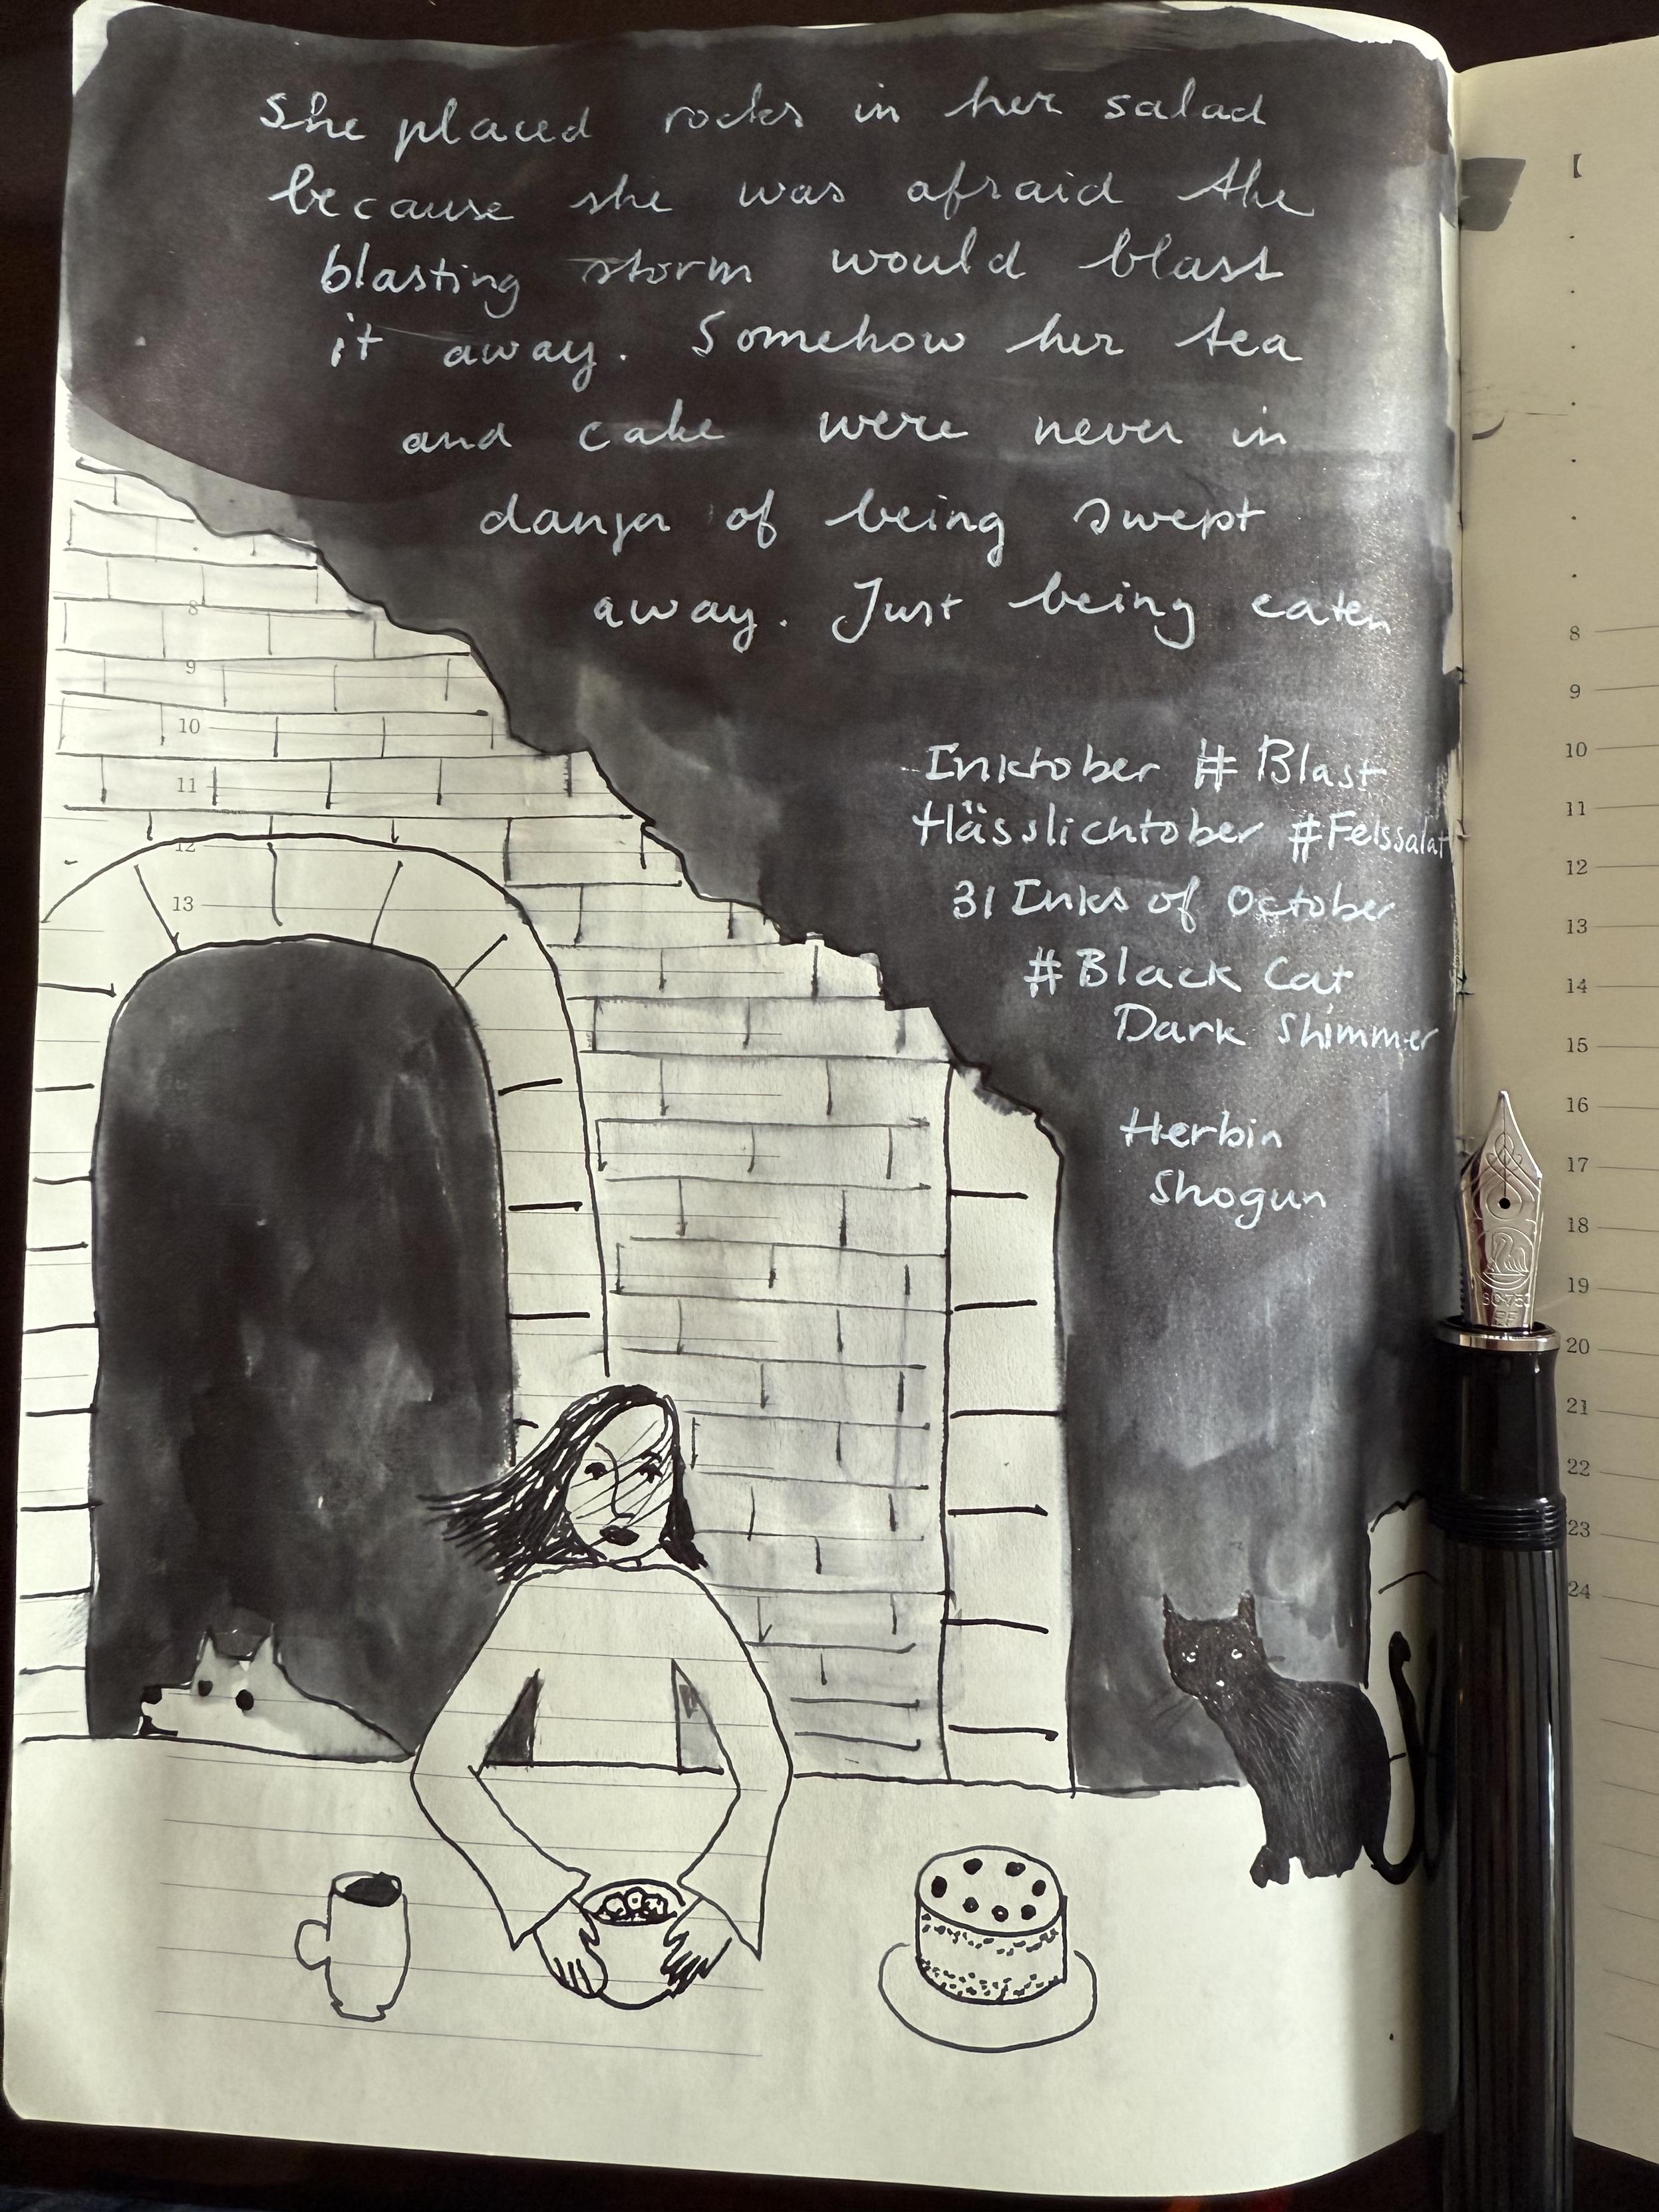 She placed rocks in her salad
because she was afraid the
blasting storm would blast
it away. Somehow her tea
and cake were never in
danger of being swept
away. Just being eaten
Inktober # Blast
Hässlichtober #Felssalat
31 Inks of October
# Black Cat
Dark Shimmer
Herbin
Shogun
8
9
10
11
12
13
8
9
10
11
12
13
14
15
16
17
18
19
20
21
22
23
24